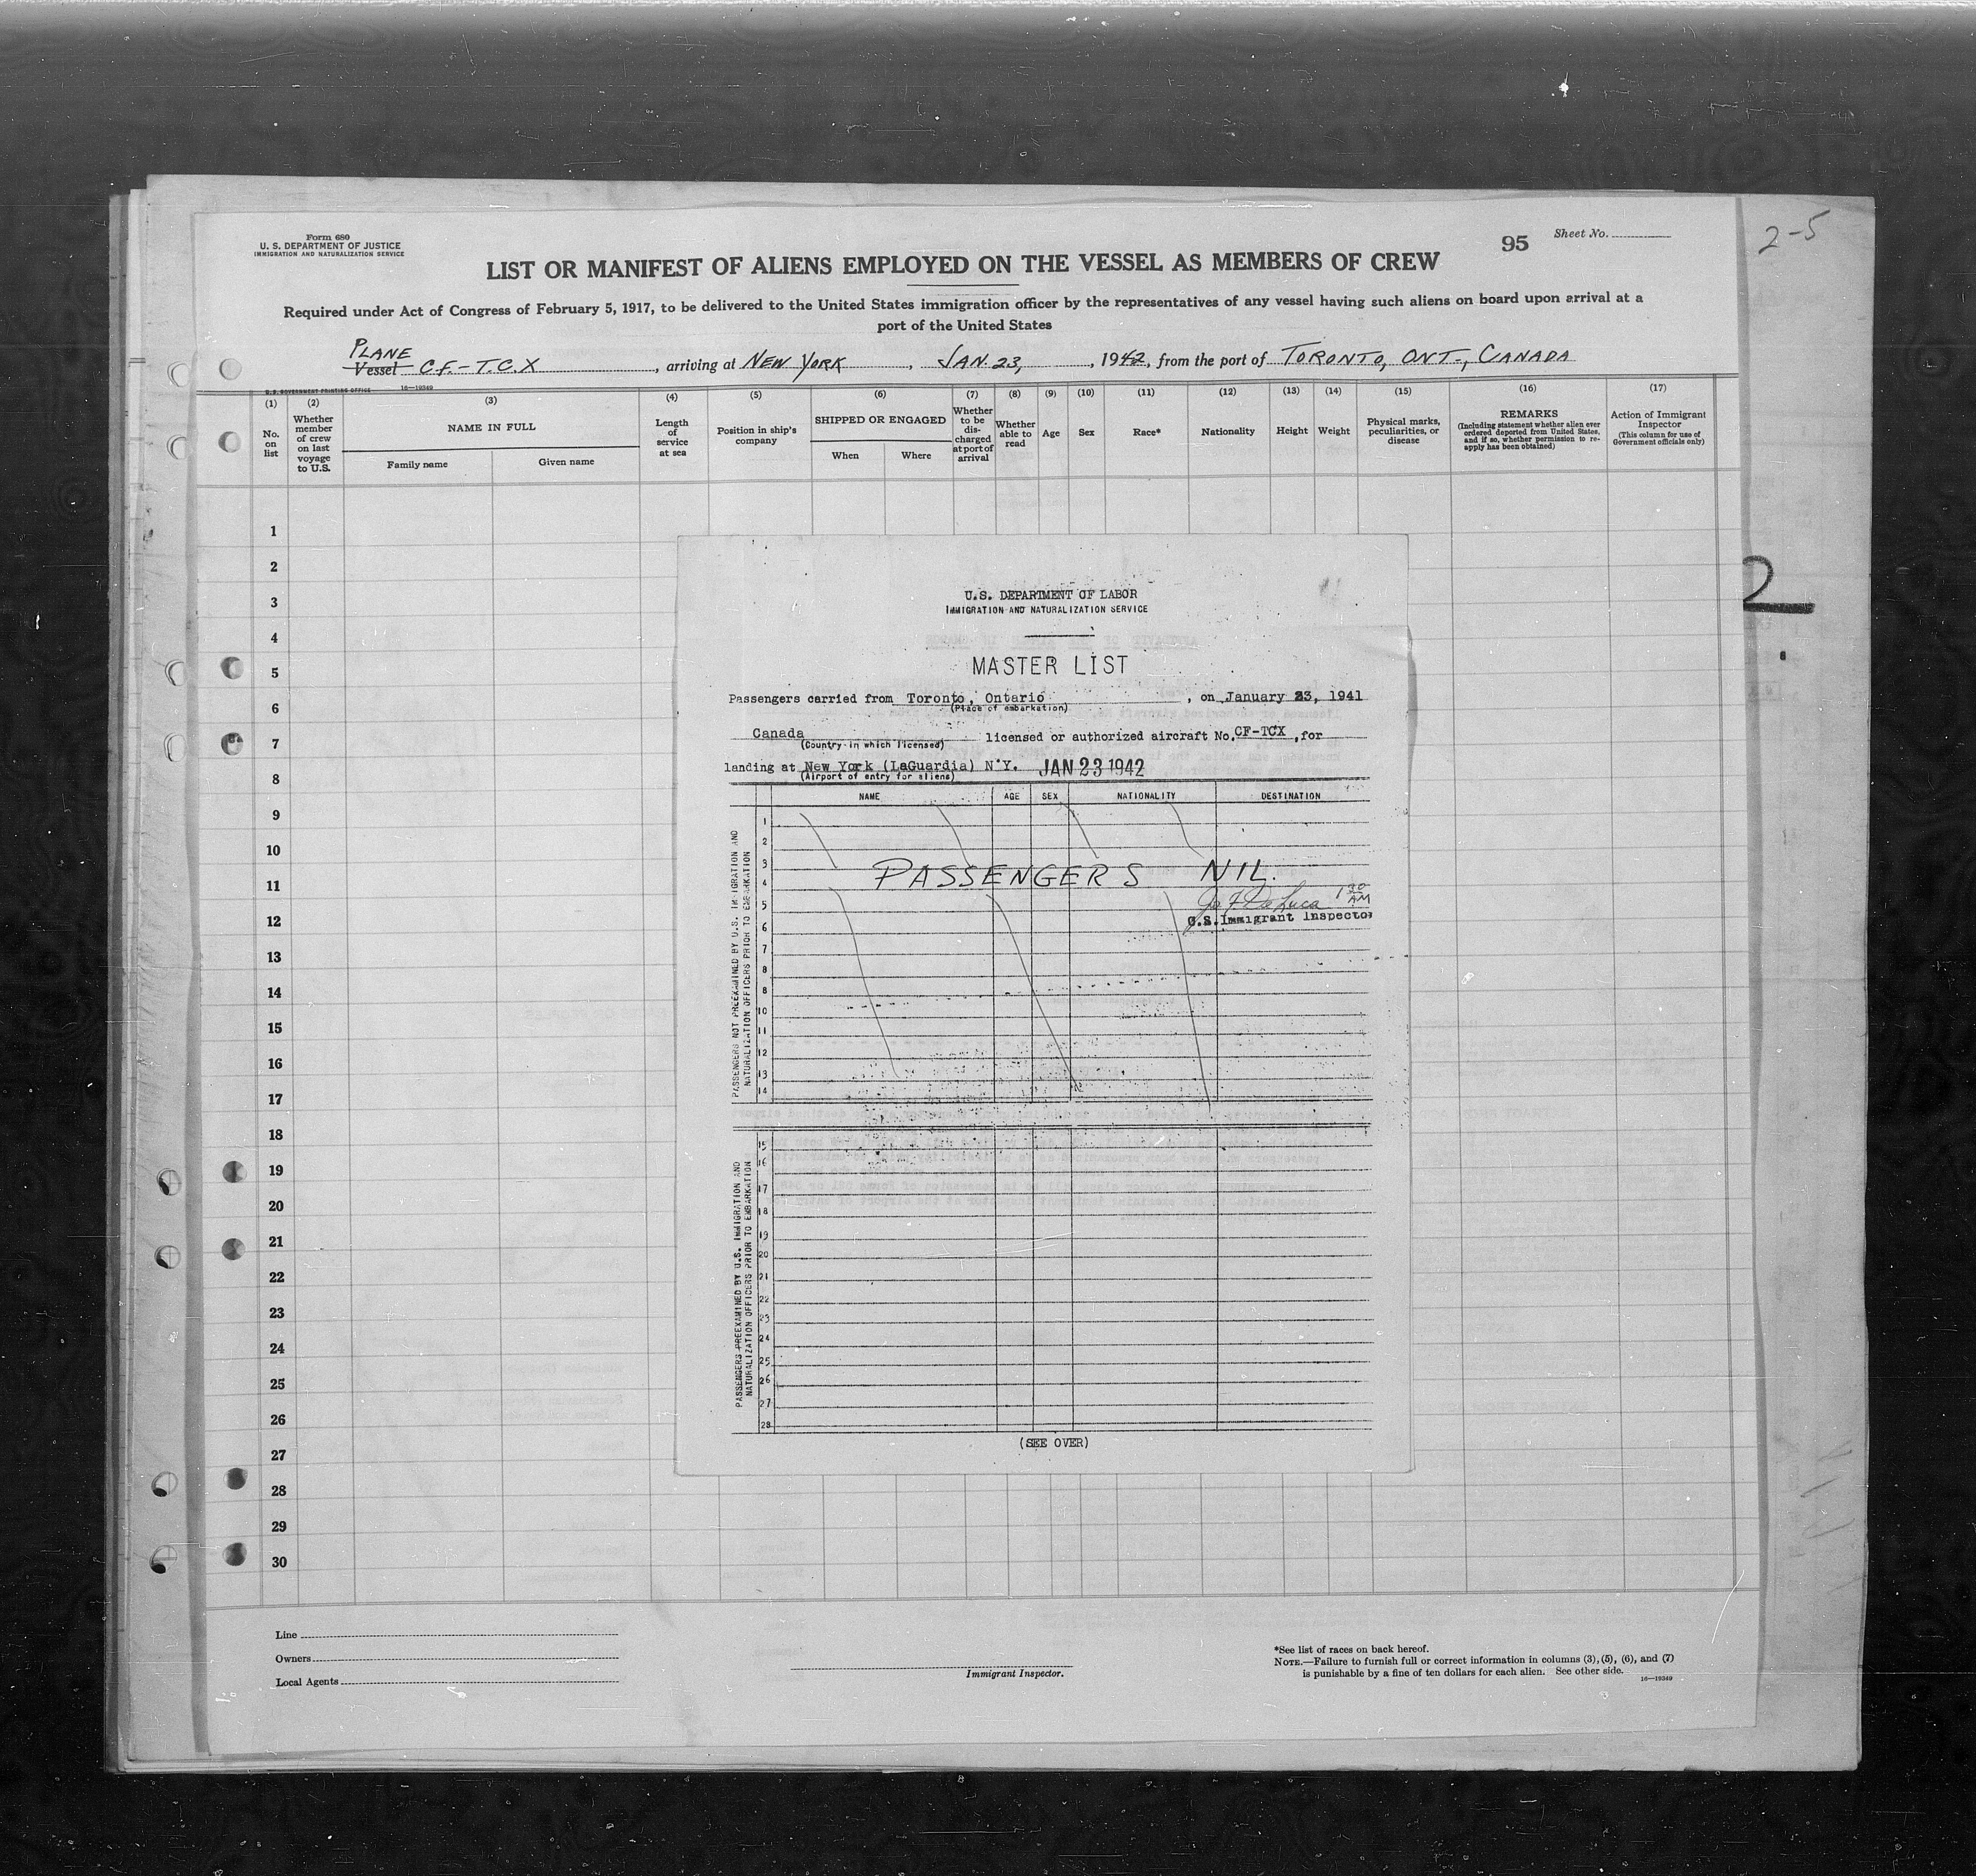 Form 680
U. S. DEPARTMENT OF JUSTICE
IMMIGRATION AND NATURALIZATION SERVICE
95
Sheet No.
2-5
LIST OR MANIFEST OF ALIENS EMPLOYED ON THE VESSEL AS MEMBERS OF CREW
Required under Act of Congress of February 5, 1917, to be delivered to the United States immigration officer by the representatives of any vessel having such aliens on board upon arrival at a
port of the United States
PLANE
Vessel CF.-T.C.X, arriving at NEW YORK, JAN. 23, 1942, from the port of TORONTO, ONT., CANADA
U. S. GOVERNMENT PRINTING OFFICE 16—19349
(1) No. on list
(2) Whether member of crew on last voyage to U.S.
(3) NAME IN FULL
Family name
Given name
(4) Length of service at sea
(5) Position in ship's company
(6) SHIPPED OR ENGAGED
When
Where
(7) Whether to be discharged at port of arrival
(8) Whether able to read
(9) Age
(10) Sex
(11) Race*
(12) Nationality
(13) Height
(14) Weight
(15) Physical marks, peculiarities, or disease
(16) REMARKS
(Including statement whether alien ever ordered deported from United States, and if so, whether permission to re-apply has been obtained)
(17) Action of Immigrant Inspector
(This column for use of Government officials only)
1
2
3
4
5
6
7
8
9
10
11
12
13
14
15
16
17
18
19
20
21
22
23
24
25
26
27
28
29
30
2
U.S. DEPARTMENT OF LABOR
IMMIGRATION AND NATURALIZATION SERVICE
MASTER LIST
Passengers carried from Toronto, Ontario, on January 23, 1941
(Place of embarkation)
Canada licensed or authorized aircraft No. CF-TCX, for
(Country in which licensed)
landing at New York (LaGuardia) N.Y. JAN 23 1942
(Airport of entry for aliens)
NAME AGE SEX NATIONALITY DESTINATION
PASSENGERS NOT PREEXAMINED BY U.S. IMMIGRATION AND
NATURALIZATION OFFICERS PRIOR TO EMBARKATION
1
2
3
PASSENGERS NIL.
4
5
1 30 AM
U.S. Immigrant Inspector
6
7
8
8
10
11
12
13
14
PASSENGERS PREEXAMINED BY U.S. IMMIGRATION AND
NATURALIZATION OFFICERS PRIOR TO EMBARKATION
15
16
17
18
19
20
21
22
23
24
25
26
27
28
(SEE OVER)
Line
Owners
Local Agents
Immigrant Inspector.
*See list of races on back hereof.
NOTE.—Failure to furnish full or correct information in columns (3), (5), (6), and (7)
is punishable by a fine of ten dollars for each alien. See other side.
16—19349